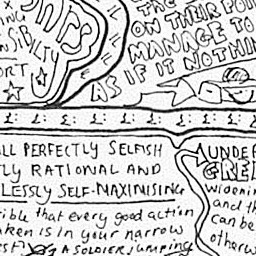 NTS
ING
SIBILTY
ORT
THE
ON THEIR POI
MANAGE TO
AS IF IT NOTHIN
£ £: £: £: £: £: £: £:
LL PERFECTLY SELFISH
TLY RATIONAL AND
LESSLY SELF-MAXIMISING
rible that every good action
aken is in your narrow
est? A SOLDIER jumping
UNDER
GREE
widenin
and th
can be
otherw